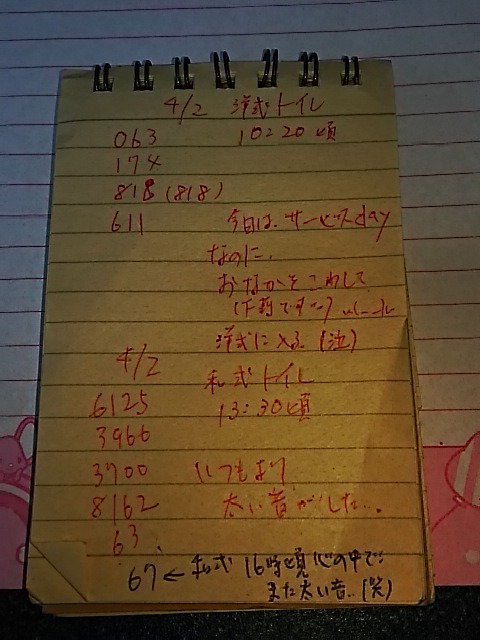 4/2 洋式トイレ
063 10:20頃
174
818 (818)
611 今日は、サービスday
なのに、
おなかをこわして
(下痢です〜)
洋式に入る (泣)
4/2
和式トイレ
6125 13:30頃
3966
3700 いつもより
8162 太い音がした...。
63.
67 ← 和式 16時頃 心の中で
また太い音..(笑)